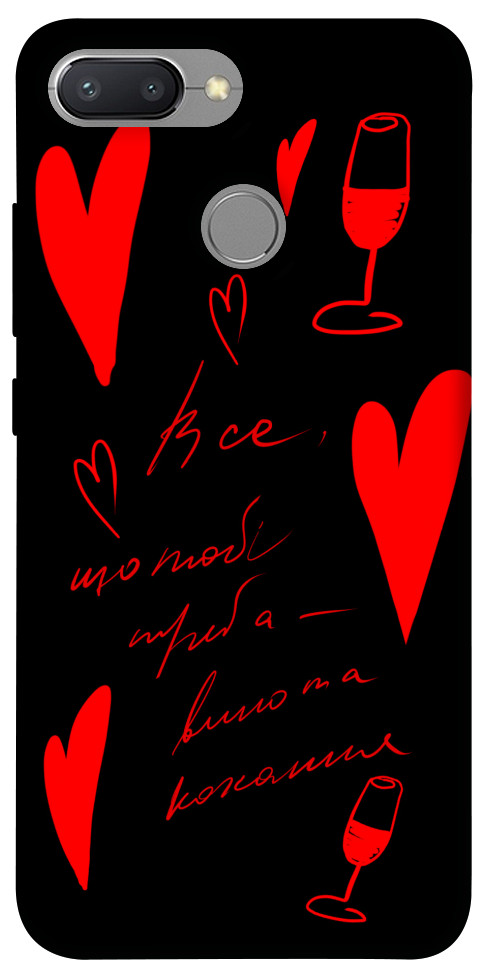 Все,
що тобі
треба —
вино та
кохання